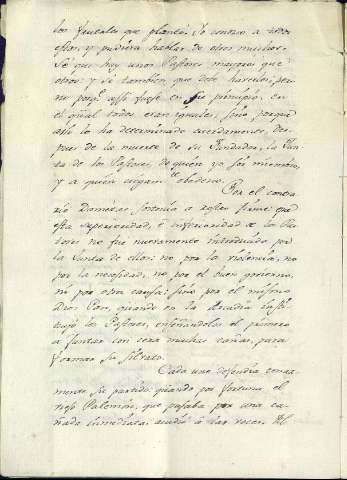 los frutales que planté. Yo conozco a todos
estos, y pudiera hablar de otros muchos.
Sé que hay unos Pastores mayores que
otros: y sé tambien, que debe haverlos, pe-
ro no porq.e assi fuesse en su principio, en
el qual todos eran iguales, sino porque
assi lo ha determinado cuerdamente, des-
pues de la muerte de su Fundador, la Jun-
ta de los Pastores, de quien yo soi miembro,
y a quien obedezco.
Por el contra-
rio Dametas sostenia a que
esta superioridad, é inferioridad de los Pas-
tores no fue nuevamente introducida por
la Junta de ellos: no por la violencia, no
por la necesidad, no por el buen govierno,
ni por otra causa; sino por el mismo
Dios Pan, quando en la Arcadia insti-
tuyó los Pastores, enseñandolos el primero
a juntar con cera muchas cañas, para
formar su silvato.
Cada uno defendia tenaz-
mente su partido, quando por fortuna el
viejo Palemón, que pasaba por una ca-
ñada inmediata, acudió á las voces. El